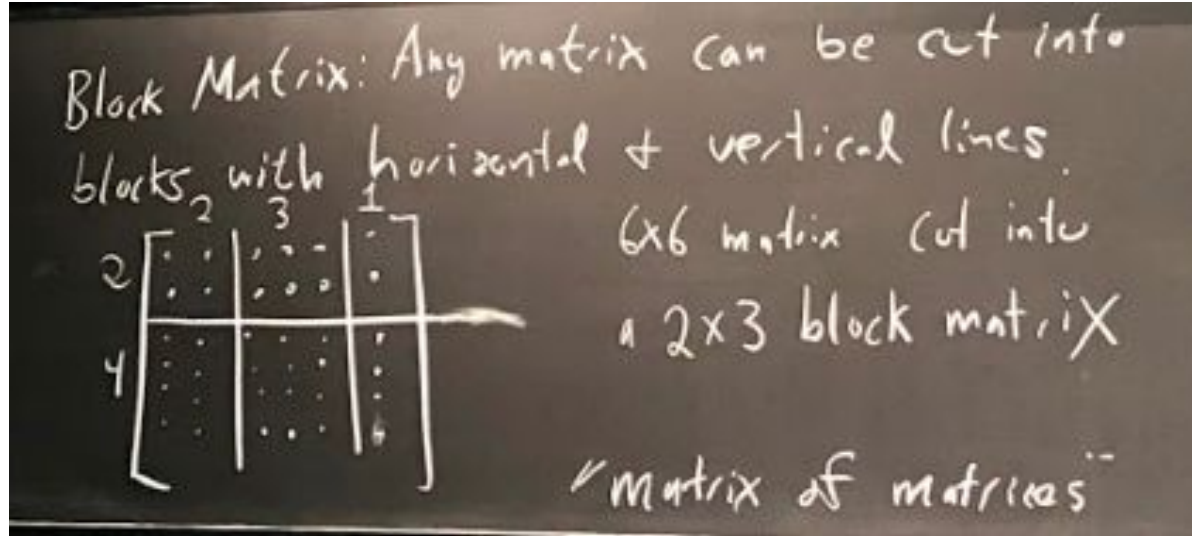 Block Matrix: Any matrix can be cut into
blocks with horizontal & vertical lines.
2 3 1
2
4
6x6 matrix cut into
a 2x3 block matrix
"matrix of matrices"